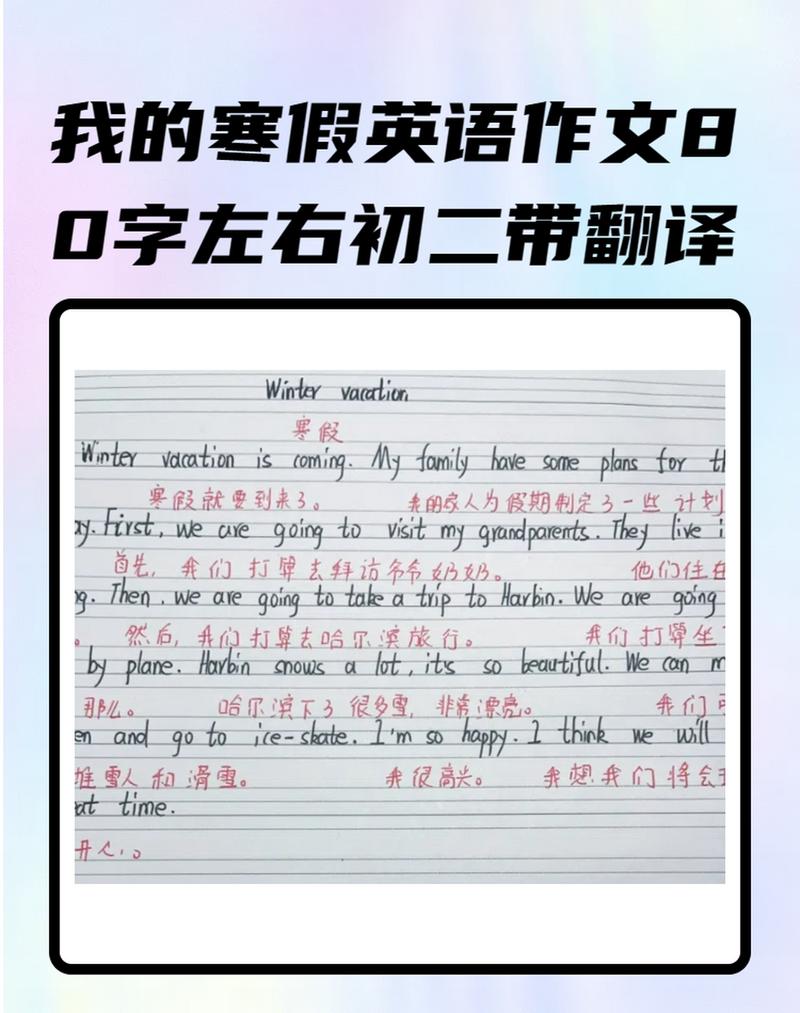 我的寒假英语作文8
0字左右初二带翻译
Winter vacation
寒假
Winter vacation is coming. My family have some plans for th
寒假就要到来了。 我的家人为假期制定了一些计划
ay. First, we are going to visit my grandparents. They live i
首先, 我们打算去拜访爷爷奶奶。 他们住在
g. Then, we are going to take a trip to Harbin. We are going
。 然后, 我们打算去哈尔滨旅行。 我们打算坐
by plane. Harbin snows a lot, it's so beautiful. We can m
那儿。 哈尔滨下了很多雪, 非常漂亮。 我们可
en and go to ice-skate. I'm so happy. I think we will
堆雪人和滑雪。 我很高兴。 我想我们将会
at time.
开心。